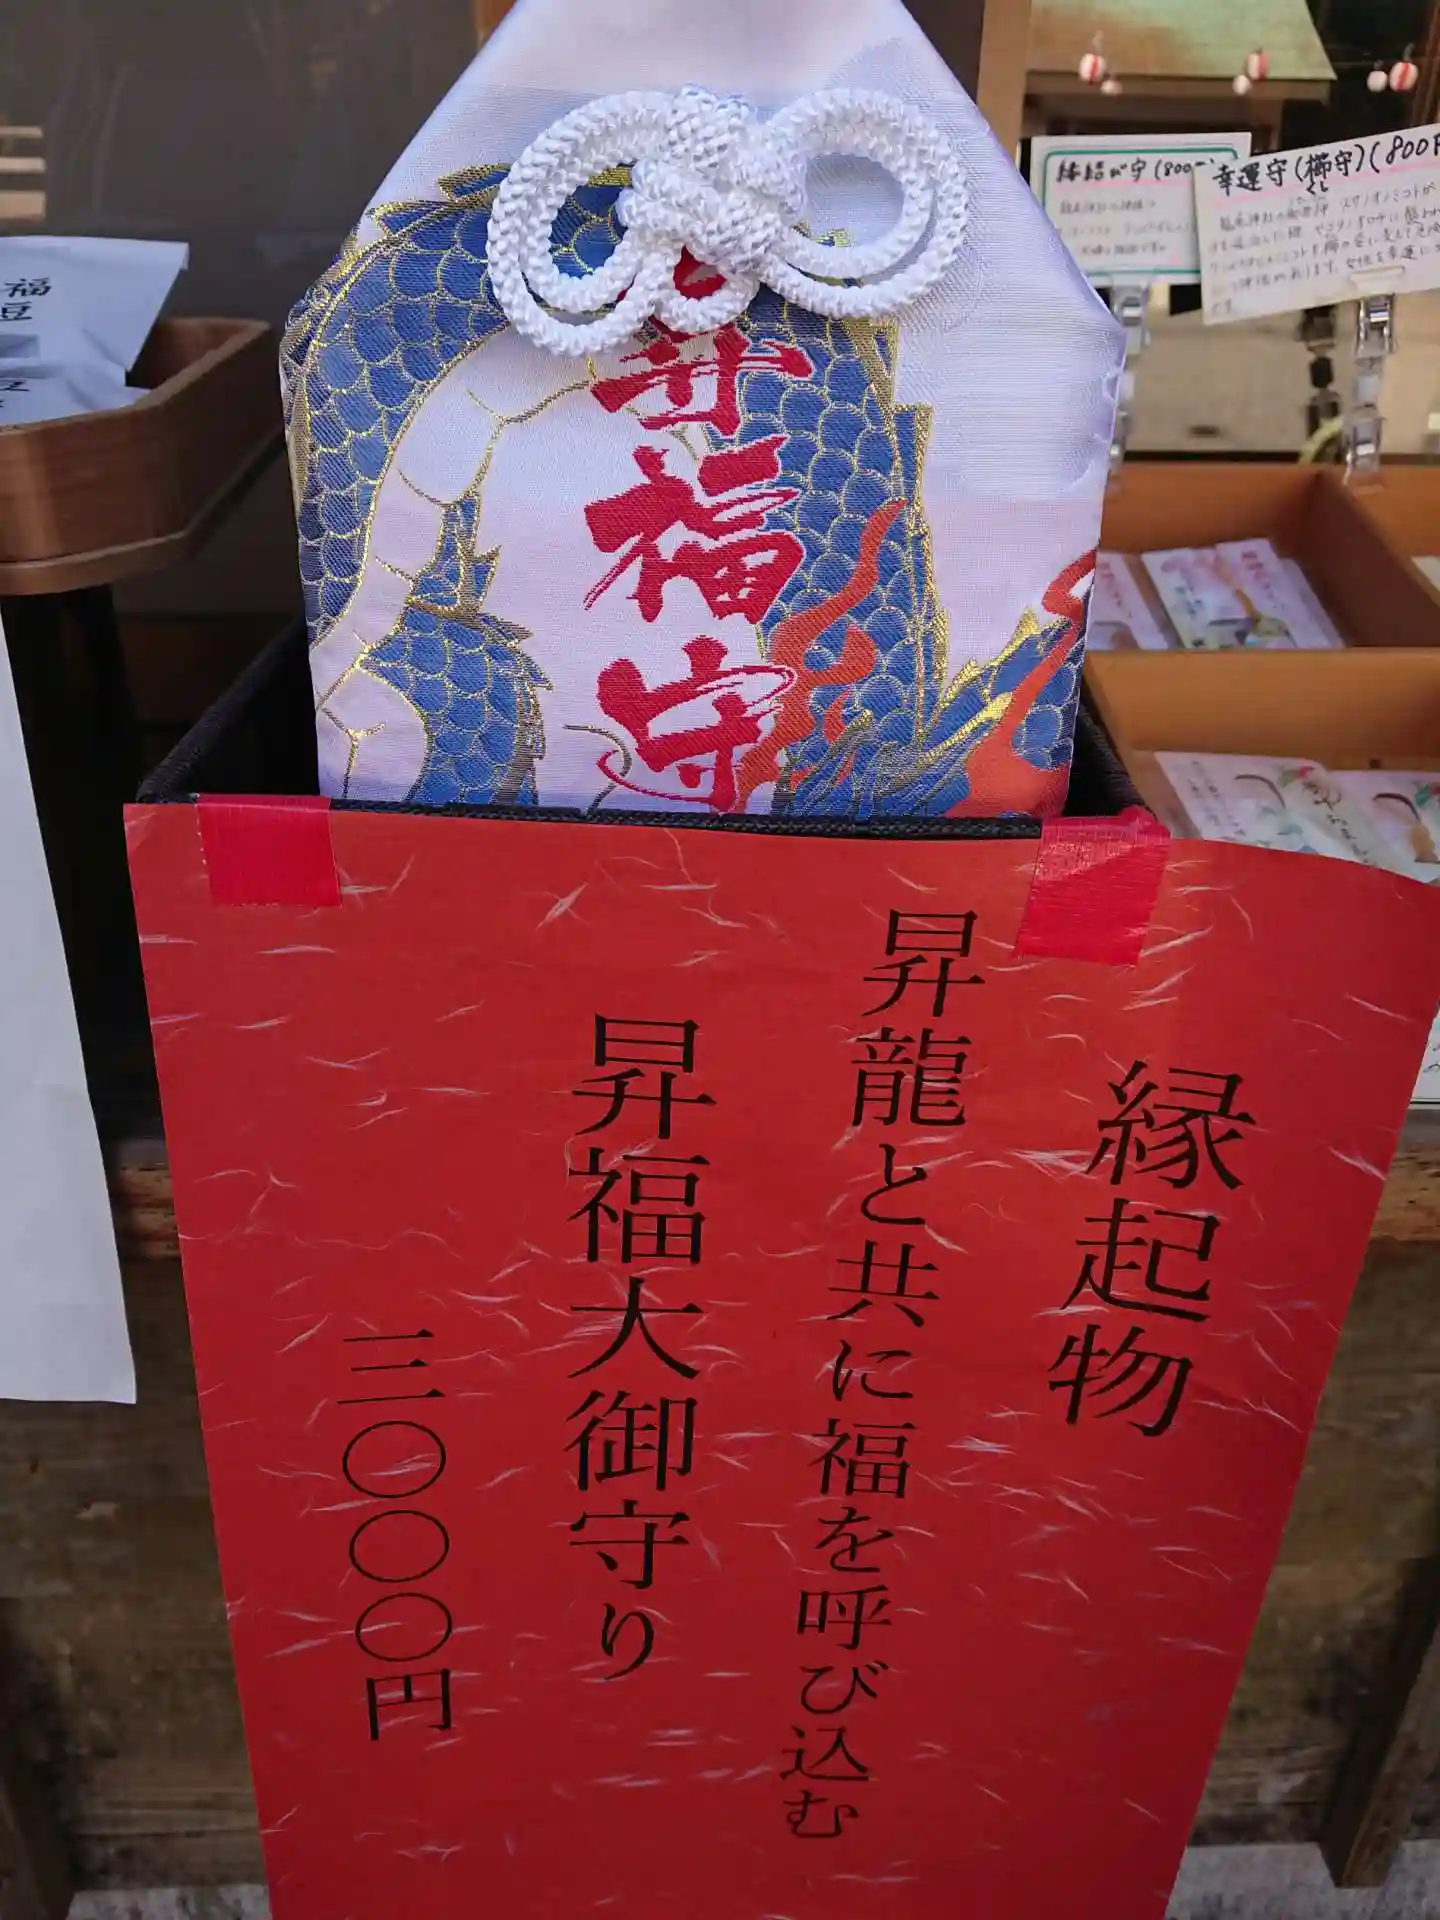 昇福守
縁起物
昇龍と共に福を呼び込む
昇福大御守り
三〇〇〇円
福豆
縁結び守(800
幸運守(櫛守)(800円
くし